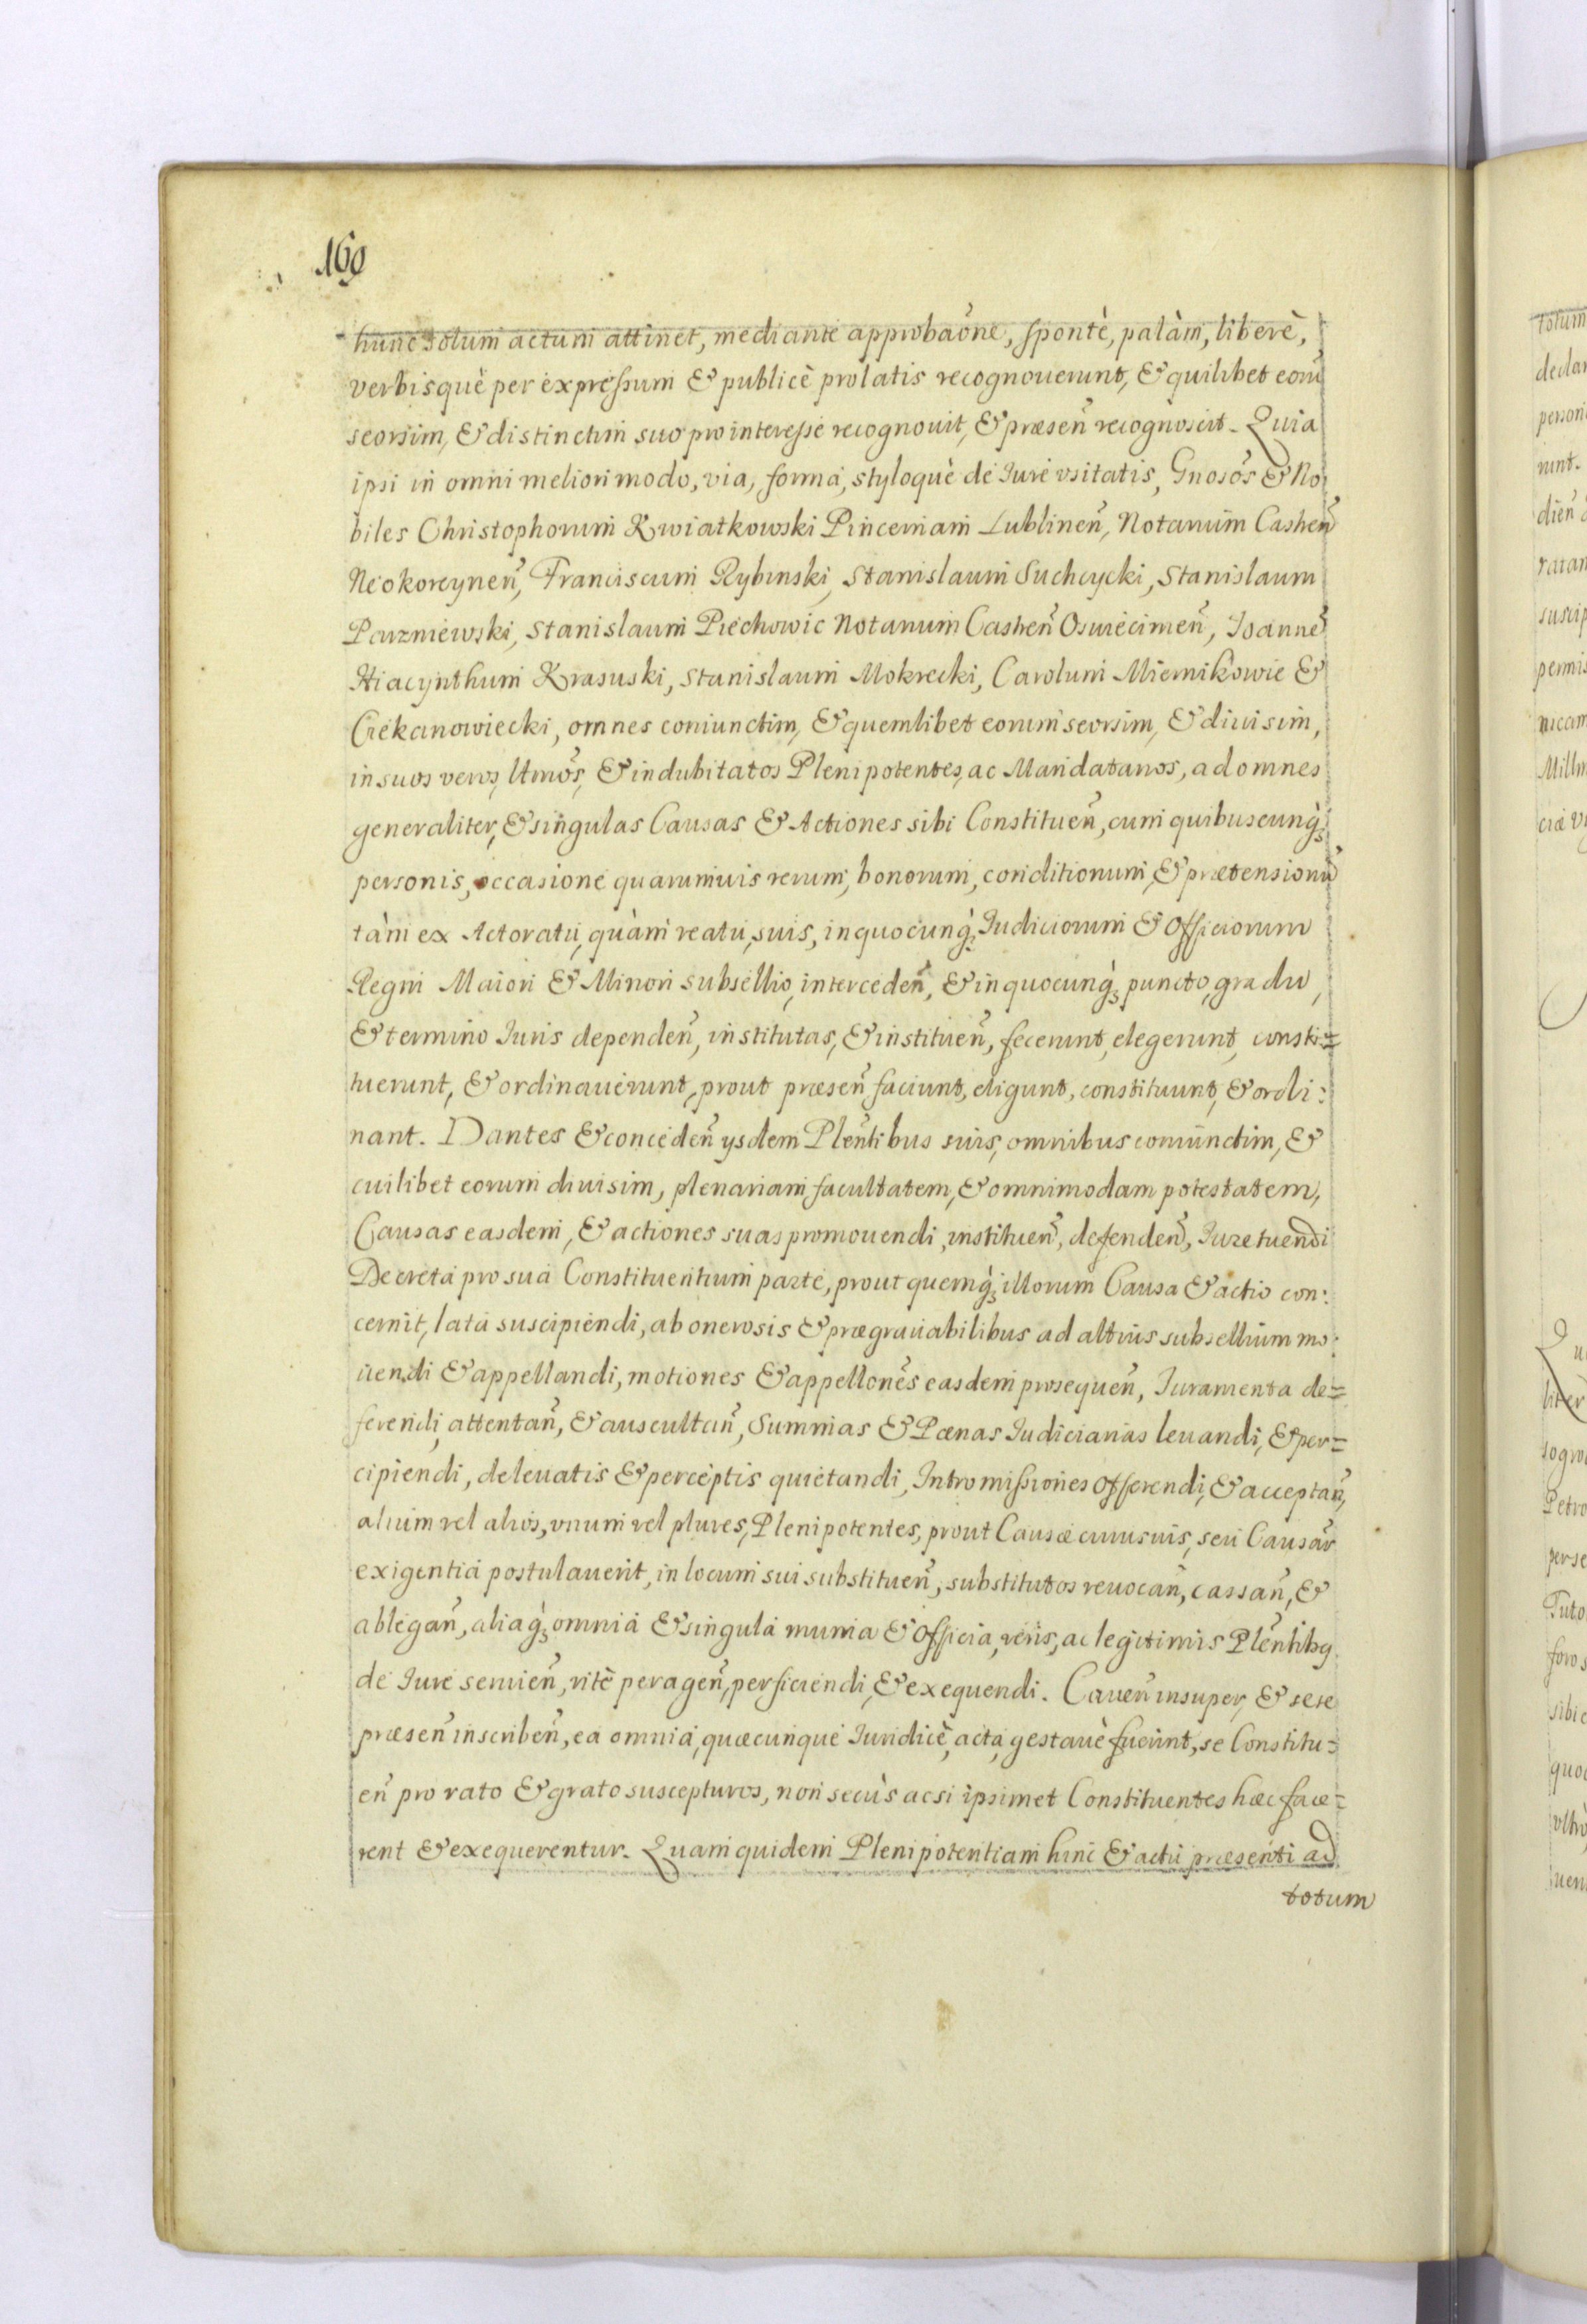 160
hunc totum actum attinet, mediante approbaõne, spontè, palàm, liberè,
verbisquè per expressum & publicè prolatis recognouerunt, & quilibet eorũ
seorsim, & distinctim suo pro interesse recognouit, & præseñ recognoscit. Quia
ipsi in omni meliori modo, via, forma, styloquè de Iure vsitatis, Gnosõs & No
biles Christophorum Kwiatkowski Pincernam Lublineñ, Notarium Castreñ
Neokorcyneñ, Franciscum Rybinski, Stanislaum Suchcycki, Stanislaum
Paruzniewski, Stanislaum Piechowic Notarium Castreñ Oswiecimeñ, Ioanne᷉
Hiacynthum Krasuski, Stanislaum Mokrecki, Carolum Miernikowic &
Ciekanowiecki, omnes coniunctim, & quemlibet eorum seorsim, & diuisim,
in suos veros, ltmõs, & indubitatos Plenipotentes, ac Mandatarios, ad omnes
generaliter, & singulas Causas & Actiones sibi Constitueñ, cum quibuscunq̀;
personis, occasione quarumuis rerum, bonorum, conditionum, & prætensionũ
tàm ex Actoratu, quàm reatu, suis, in quocunq̀; Iudiciorum & Officiorum
Regni Maiori & Minori subsellio, intercedeñ, & in quocunq̀; puncto, gradu,
& termino Iuris dependeñ, institutas, & institueñ, fecerunt, elegerunt, consti=
tuerunt, & ordinauerunt, prout præseñ faciunt, eligunt, constituunt, & ordi:
nant. Dantes & concedeñ ysdem Pleñtibus suis, omnibus coniunctim, &
cuilibet eorum diuisim, plenariam facultatem, & omnimodam potestatem,
Causas easdem, & actiones suas promouendi, institueñ, defendeñ, Iure tuendi
Decreta pro sua Constituentium parte, prout quemq̀; illorum Causa & actio con:
cernit, lata suscipiendi, ab onerosis & prægrauabilibus ad altius subsellium mo:
uendi & appellandi, motiones & appellonẽs easdem prosequeñ, Iuramenta de=
ferendi, attentañ, & auscultañ, Summas & Pœnas Iudiciarias leuandi, & per=
cipiendi, de leuatis & perceptis quietandi, Intromissiones offerendi, & acceptañ,
alium vel alios, vnum vel plures, Plenipotentes, prout Causæ cuiusuis, seu Causar̃
exigentia postulauerit, in locum sui substitueñ, substitutos reuocañ, cassañ, &
ablegañ, aliaq̀; omnia & singula munia & officia, veris, ac legitimis Pleñtibq
de Iure seruieñ, ritè perageñ, perficiendi, & exequendi. Caueñ insuper, & sese
præseñ inscribeñ, ea omnia, quæcunque Iuridicè, acta, gestauè fuerint, se Constitu=
eñ pro rato & grato suscepturos, non secùs ac si ipsimet Constituentes hæc face=
rent & exequerentur. Quam quidem Plenipotentiam hinc & actu præsenti ad
totum